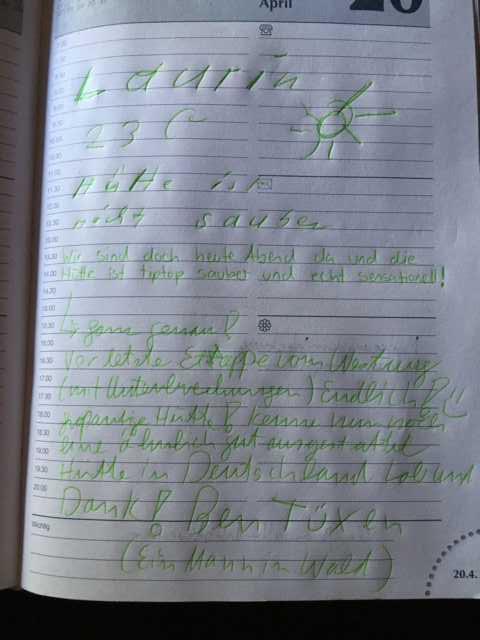 April
20
Laurin
23 C
Hütte ist
nicht sauber
Wir sind doch heute Abend da und die
Hütte ist tiptop sauber und echt sensationell!
↳ ganz genau!
Vorletzte Etappe vom Westweg
(mit Unterbrechungen) Endlich
Hütte! Kenne nur noch
eine ähnlich gut ausgestattet
Hütte in Deutschland Lob und
Dank! Ben Tüxen
(Ein Mann im Wald)
Wichtig
20.4.